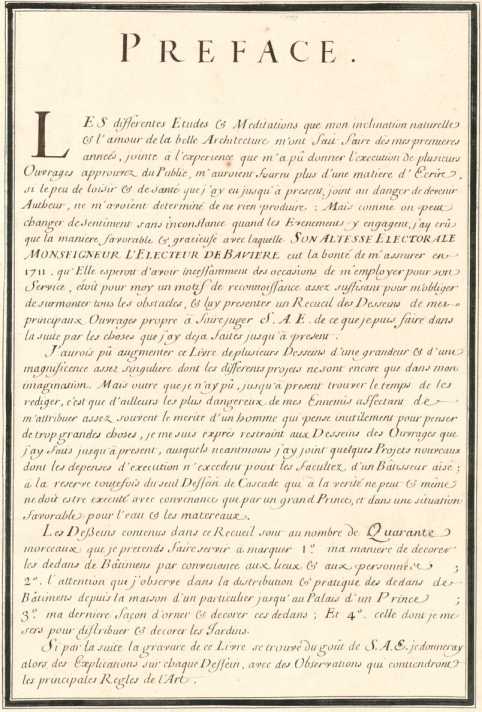 PREFACE.
LES différentes Etudes & Meditations que mon inclination naturelle
& l'amour de la belle Architecture m'ont fait faire dès mes premieres
années, jointe à l'experience que m'a pû donner l'execution de plusieurs
Ouvrages approuvez du Public, m'auroient fourni plus d'une matiere d'Ecrire,
si le peu de loisir & de santé que j'ay eu jusqu'à present, joint au danger de devenir
Autheur, ne m'avoient determiné de ne rien produire: Mais comme on peut
changer de sentiment sans inconstance quand les Evenements y engagent, j'ay crû
que la maniere, favorable & gracieuse avec laquelle SON ALTESSE ELECTORALE
MONSEIGNEUR L'ELECTEUR DE BAVIERE eut la bonté de m'assurer en
1711. qu'Elle esperoit d'avoir incessamment des occasions de m'employer pour son
Service, étoit pour moy un motif de reconnoissance assez suffisant pour m'obliger
de surmonter tous les obstacles, & luy presenter un Recueil des Desseins de mes
principaux Ouvrages propre à faire juger S.A.E. de ce que je puis faire dans
la suite par les choses que j'ay deja faites jusqu'à present.
J'aurois pû augmenter ce Livre de plusieurs Desseins d'une grandeur & d'une
magnificence assez singuliere dont les differents projets ne sont encore que dans mon
imagination. Mais outre que je n'ay pû, jusqu'à present trouver le temps de les
rediger, c'est que d'ailleurs les plus dangereux de mes Ennemis affectant de
m'attribuer assez souvent le merite d'un homme qui pense inutilement pour penser
de trop grandes choses, je me suis exprès restraint aux Desseins des Ouvrages que
j'ay faits jusqu'à present, ausquels neantmoins j'ay joint quelques Projets nouveaux
dont les depenses d'execution n'excedent point les facultez d'un Bâtisseur aisé;
à la reserve toutefois du seul Dessein de Cascade qui à la verité ne peut & même
ne doit estre executé avec convenance que par un grand Prince, et dans une situation
favorable pour l'eau & les matereaux.
Les Desseins contenus dans ce Recueil sont au nombre de Quarante
morceaux que je pretends faire servir a marquer 1º. ma maniere de decorer
les dedans de Bâtimens par convenance aux lieux & aux personnes;
2º. l'attention que j'observe dans la distribution & pratique des dedans des
Bâtimens depuis la maison d'un particulier jusqu'au Palais d'un Prince;
3º. ma derniere façon d'orner & decorer ces dedans; Et 4º. celle dont je me
sers pour distribuer & decorer les Jardins.
Si par la suite la gravure de ce Livre se trouve du goût de S.A.E. je donneray
alors des Explications sur chaque Dessein, avec des Observations qui contiendront
les principales Regles de l'Art.